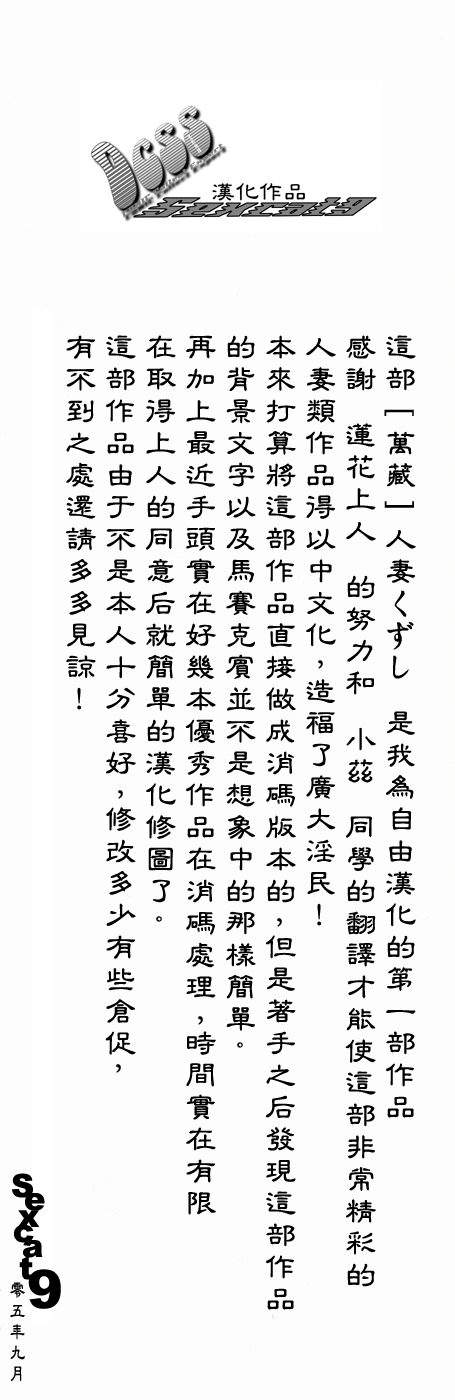 DCSS
漢化作品
Sexcat9
這部［萬藏］人妻くずし　是我為自由漢化的第一部作品
感謝　蓮花上人　的努力和　小茲　同學的翻譯才能使這部非常精彩的
人妻類作品得以中文化，造福了廣大淫民！
本來打算將這部作品直接做成消碼版本的，但是著手之后發現這部作品
的背景文字以及馬賽克賓並不是想象中的那樣簡單。
再加上最近手頭實在好幾本優秀作品在消碼處理，時間實在有限
在取得上人的同意后就簡單的漢化修圖了。
這部作品由于不是本人十分喜好，修改多少有些倉促，
有不到之處還請多多見諒！
sexcat9
零五年九月